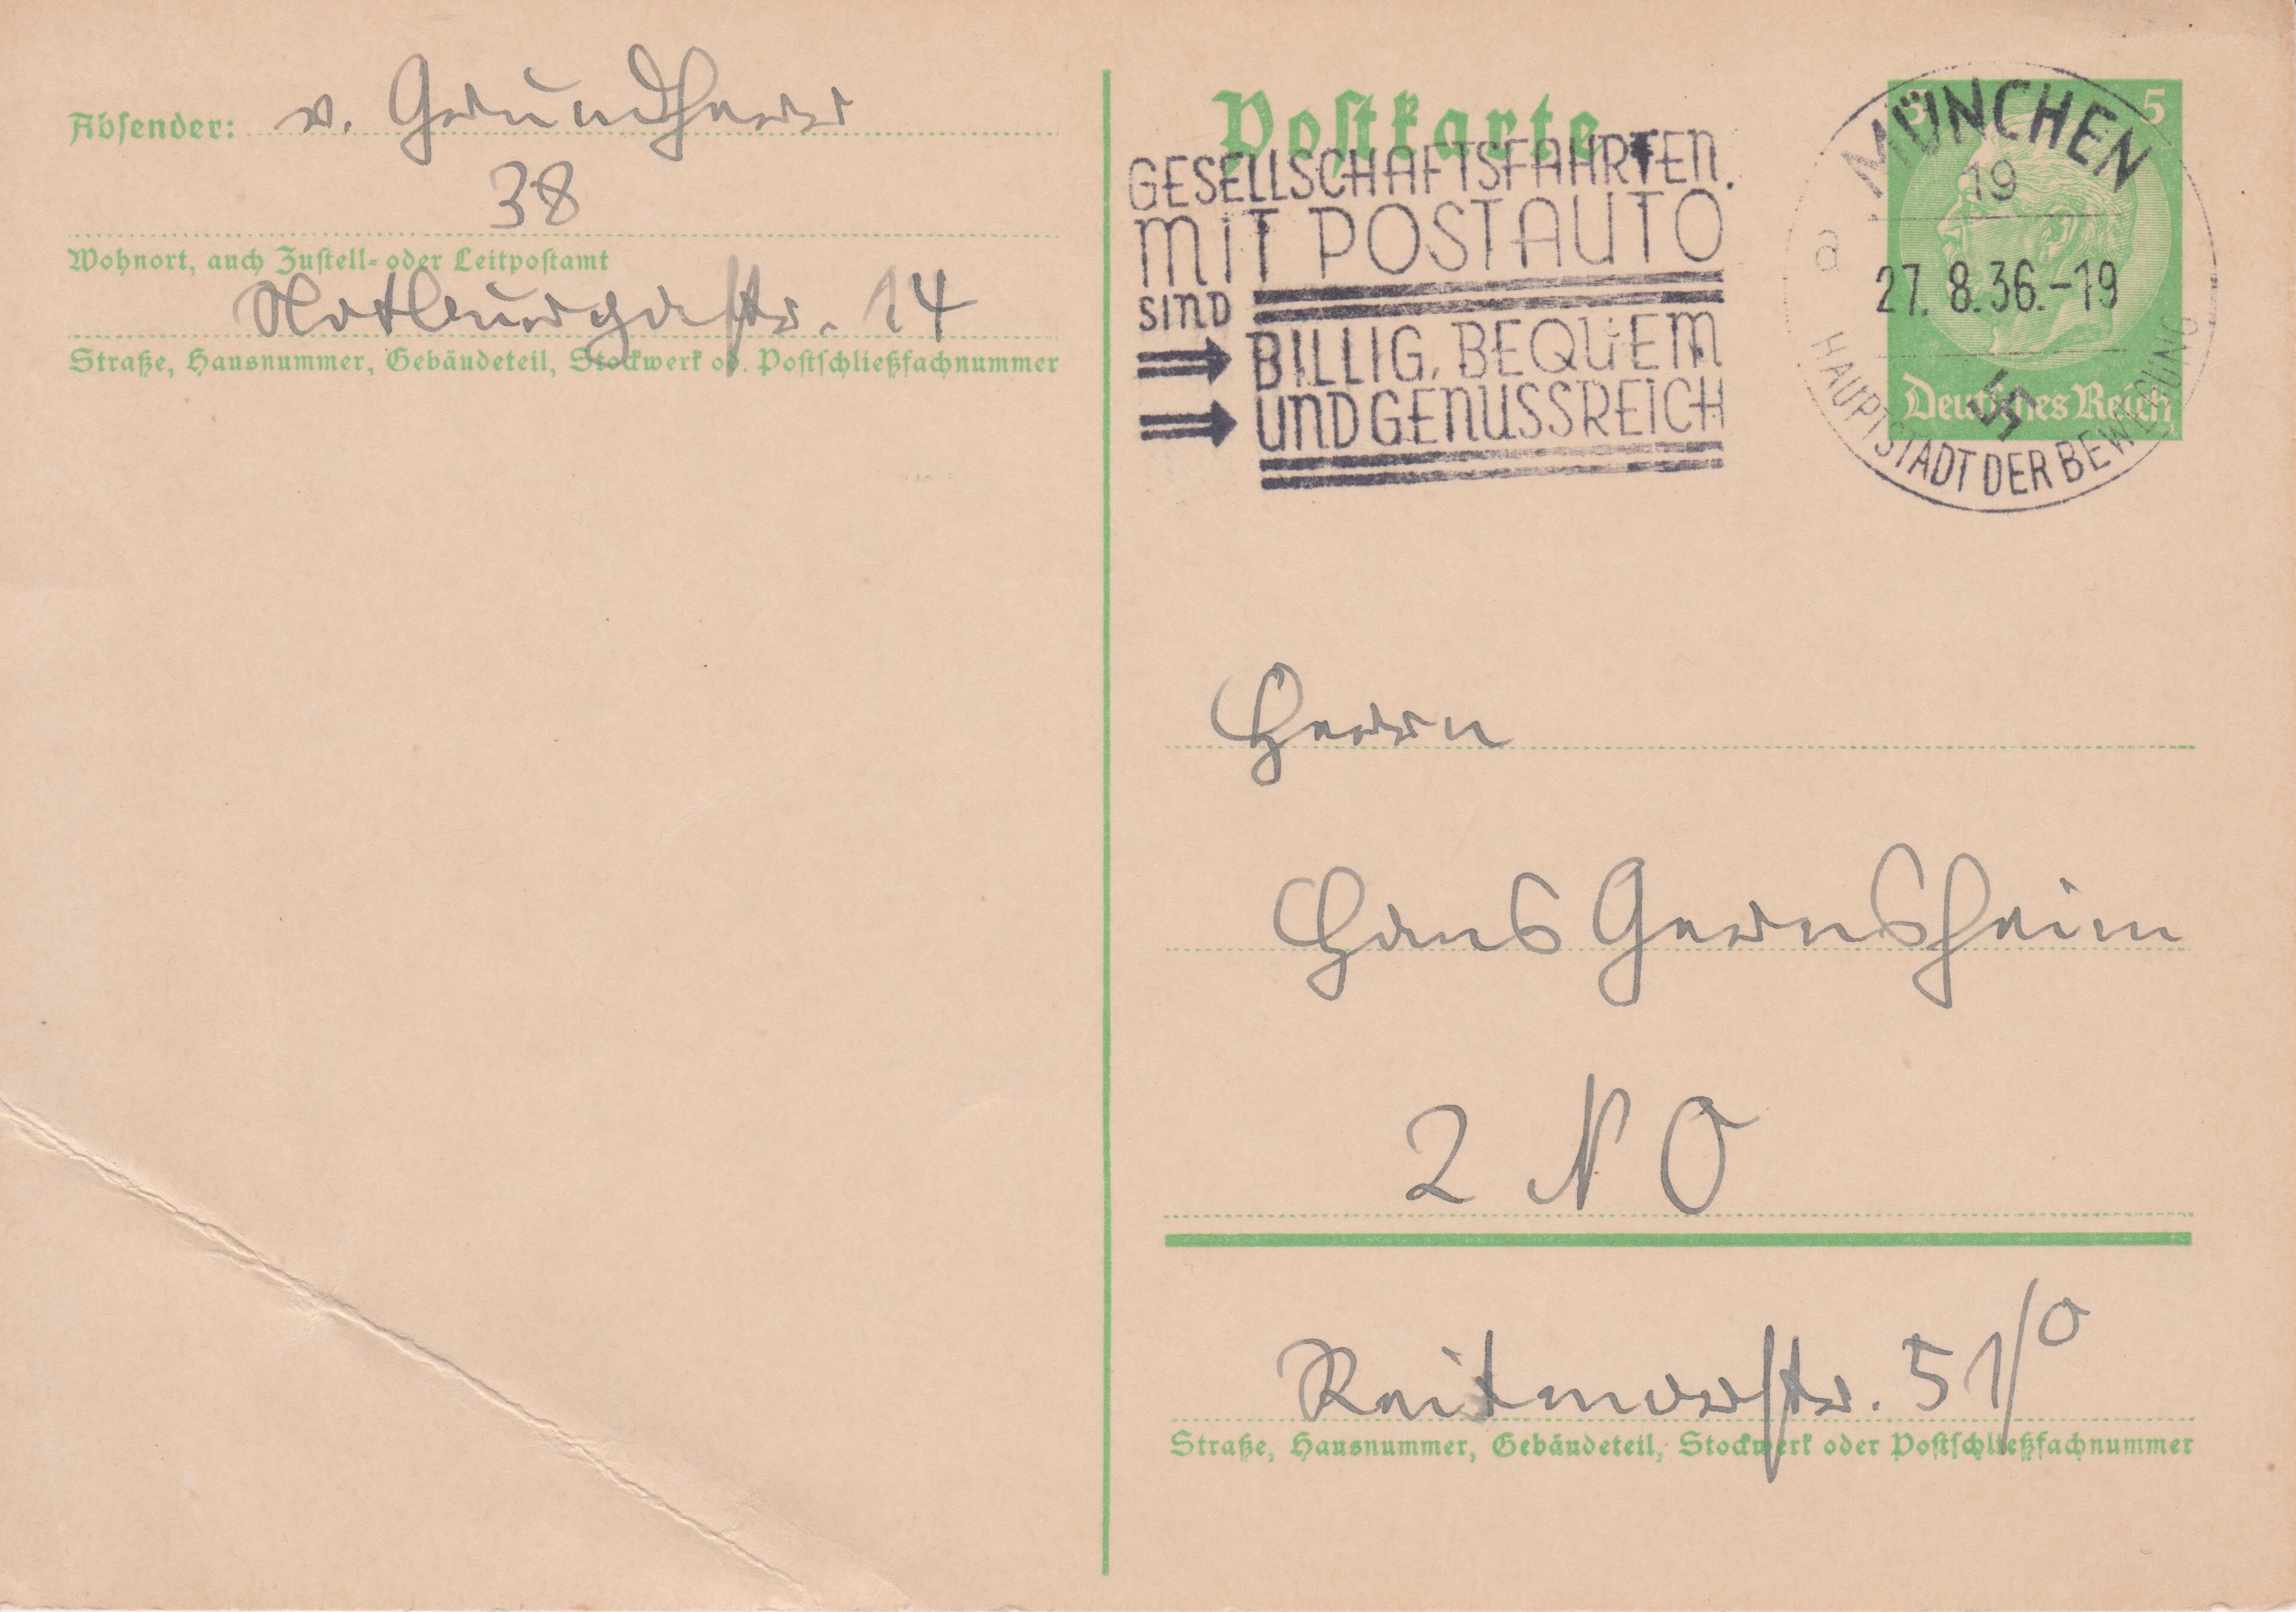 Absender: v. Grundherr
38
Wohnort, auch Zustell- oder Leitpostamt
Notburgastr. 14
Straße, Hausnummer, Gebäudeteil, Stockwerk od. Postschließfachnummer
Postkarte
GESELLSCHAFTSFAHRTEN
MIT POSTAUTO
SIND
BILLIG, BEQUEM
UND GENUSSREICH
MÜNCHEN
19
a
27.8.36.-19
HAUPTSTADT DER BEWEGUNG
5 5
Deutsches Reich
Herrn
Hans Gernsheim
2 NO
Reitmorstr. 51/0
Straße, Hausnummer, Gebäudeteil, Stockwerk oder Postschließfachnummer